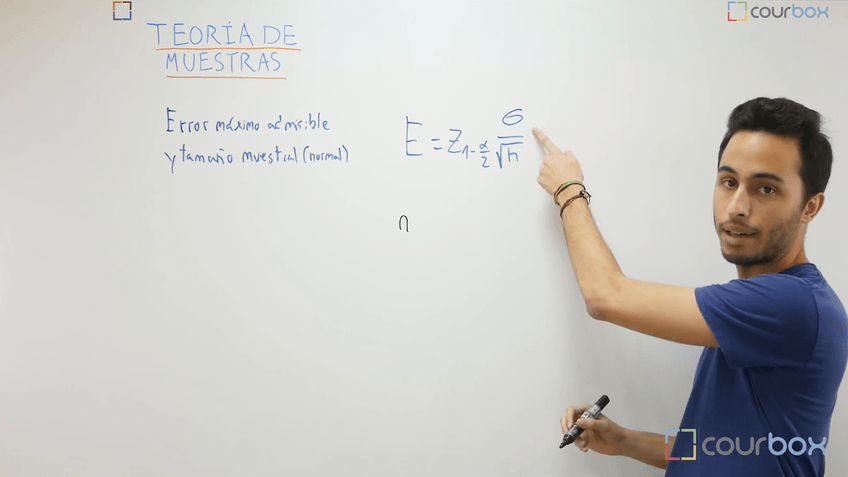 courbox
TEORÍA DE
MUESTRAS
Error máximo admisible
y tamaño muestral (normal)
E = Z1-α/2 σ/√n
n
courbox